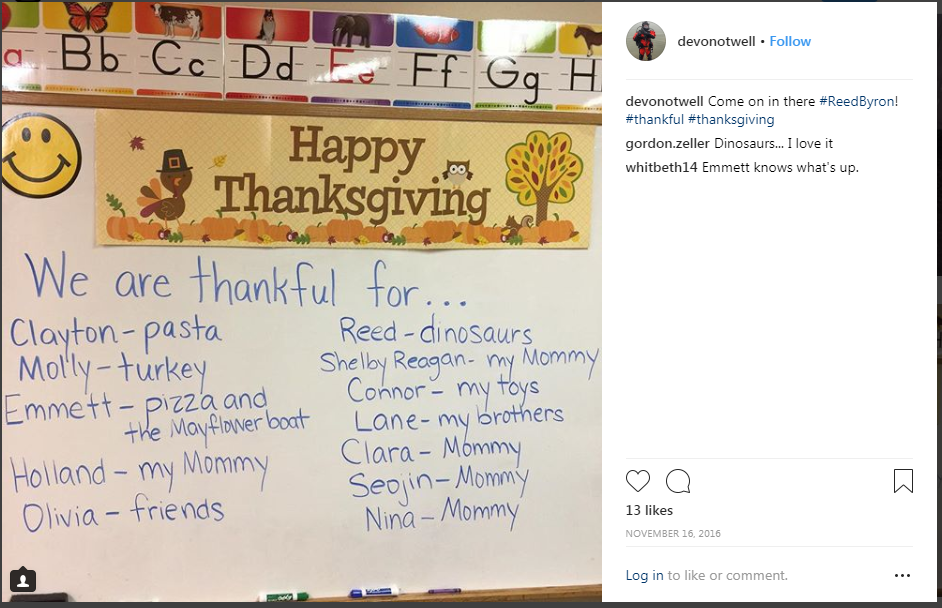 a Bb Cc Dd Ee Ff Gg H
Happy
Thanksgiving
We are thankful for...
Clayton - pasta
Molly - turkey
Emmett - pizza and
the Mayflower boat
Holland - my Mommy
Olivia - friends
Reed - dinosaurs
Shelby Reagan - my Mommy
Connor - my toys
Lane - my brothers
Clara - Mommy
Seojin - Mommy
Nina - Mommy
devonotwell • Follow
devonotwell Come on in there #ReedByron!
#thankful #thanksgiving
gordon.zeller Dinosaurs... I love it
whitbeth14 Emmett knows what's up.
13 likes
NOVEMBER 16, 2016
Log in to like or comment.